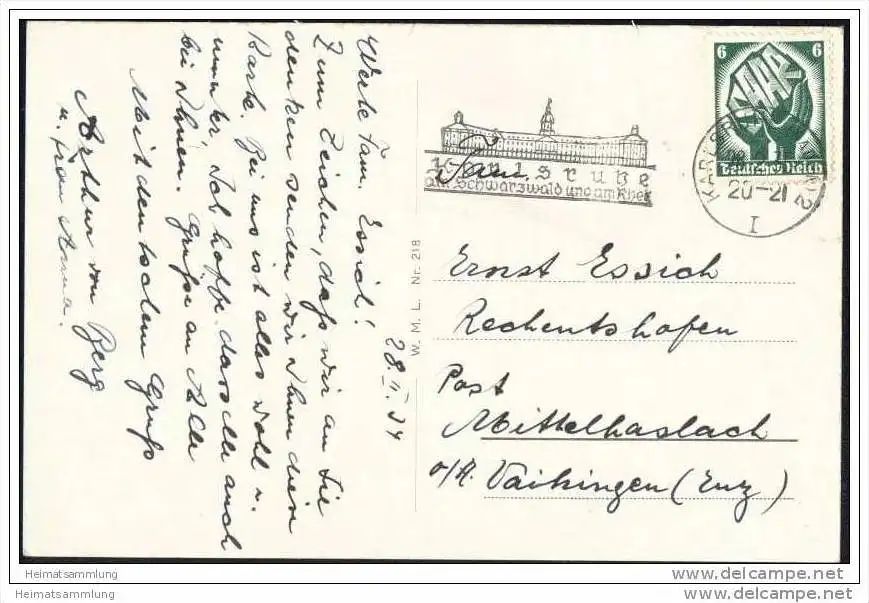 Werte Fam. Essich!
Zum Zeichen, daß wir an Sie
denken senden wir Ihnen diese
Karte. Bei uns ist alles wohl u.
munter. Ich hoffe dasselbe auch
bei Ihnen. Grüße an Alle
Mit deutschem Gruß
Arthur von Berg
u. Frau Anna.
28. II. 34
W. M. L. Nr. 218
Karlsruhe
am Schwarzwald und am Rhein
6 6
SAAR
Deutsches Reich
KARLSRUHE
20-21
I
Fam.
Ernst Essich
Rechentshofen
Post
Mittelhaslach
o/A. Vaihingen (Enz)
Heimatsammlung
Heimatsammlung
www.delcampe.net
www.delcampe.net